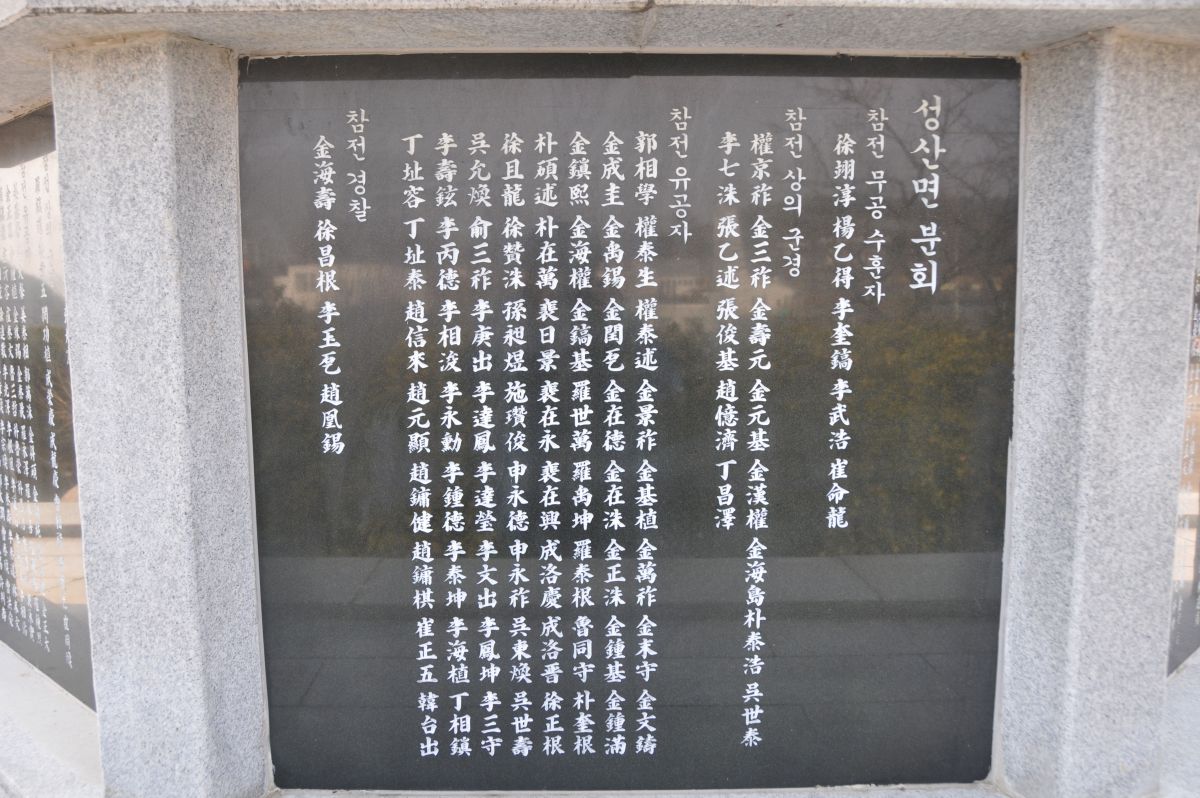 성산면 분회
참전 무공 수훈자
徐翊淳 楊乙得 李奎鎬 李武浩 崔命龍
참전 상의 군경
權京祚 金三祚 金壽元 金元基 金漢權 金海島 朴泰浩 吳世泰
李七洙 張乙述 張俊基 趙憶濟 丁昌澤
참전 유공자
郭相學 權泰生 權泰述 金景祚 金基植 金萬祚 金末守 金文鑄
金成圭 金禹錫 金閏乭 金在德 金在洙 金正洙 金鍾基 金鍾滿
金鎭熙 金海權 金鎬基 羅世萬 羅禹坤 羅泰根 魯同守 朴奎根
朴碩述 朴在萬 裵日景 裵在永 裵在興 成洛慶 成洛晋 徐正根
徐且龍 徐贊洙 孫昶煜 施瓚俊 申永德 申永祚 吳東煥 吳世壽
吳允煥 俞三祚 李庚出 李達鳳 李達瑩 李文出 李鳳坤 李三守
李壽鉉 李丙德 李相浚 李永勳 李鍾德 李泰坤 李海植 丁相鎭
丁址容 丁址泰 趙信來 趙元顯 趙鏞健 趙鏞棋 崔正五 韓台出
참전 경찰
金海壽 徐昌根 李玉乭 趙凰錫